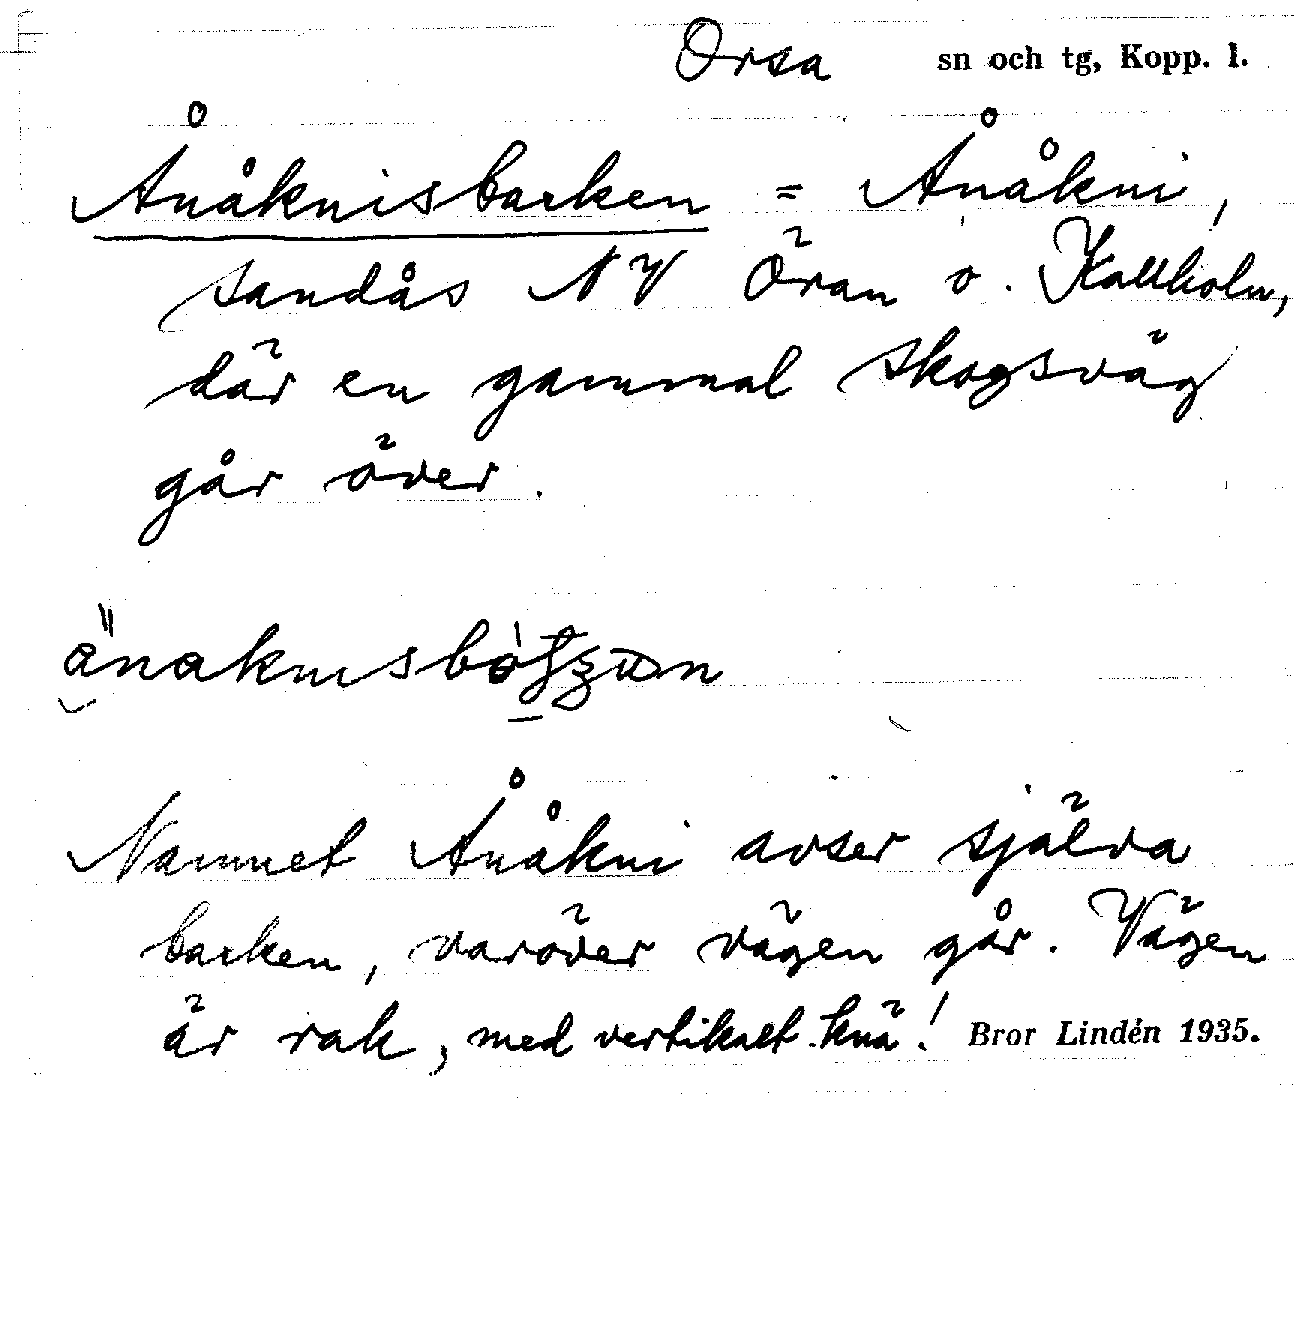 Orsa sn och tg, Kopp. l.
Ånåknisbacken = Ånåkni,
sandås NV Öran o. Kallholn,
där en gammal skogsväg
går över.
Namnet Ånåkni avser själva
backen, varöver vägen går. Vägen
är rak, med vertikalt knä! Bror Lindén 1935.